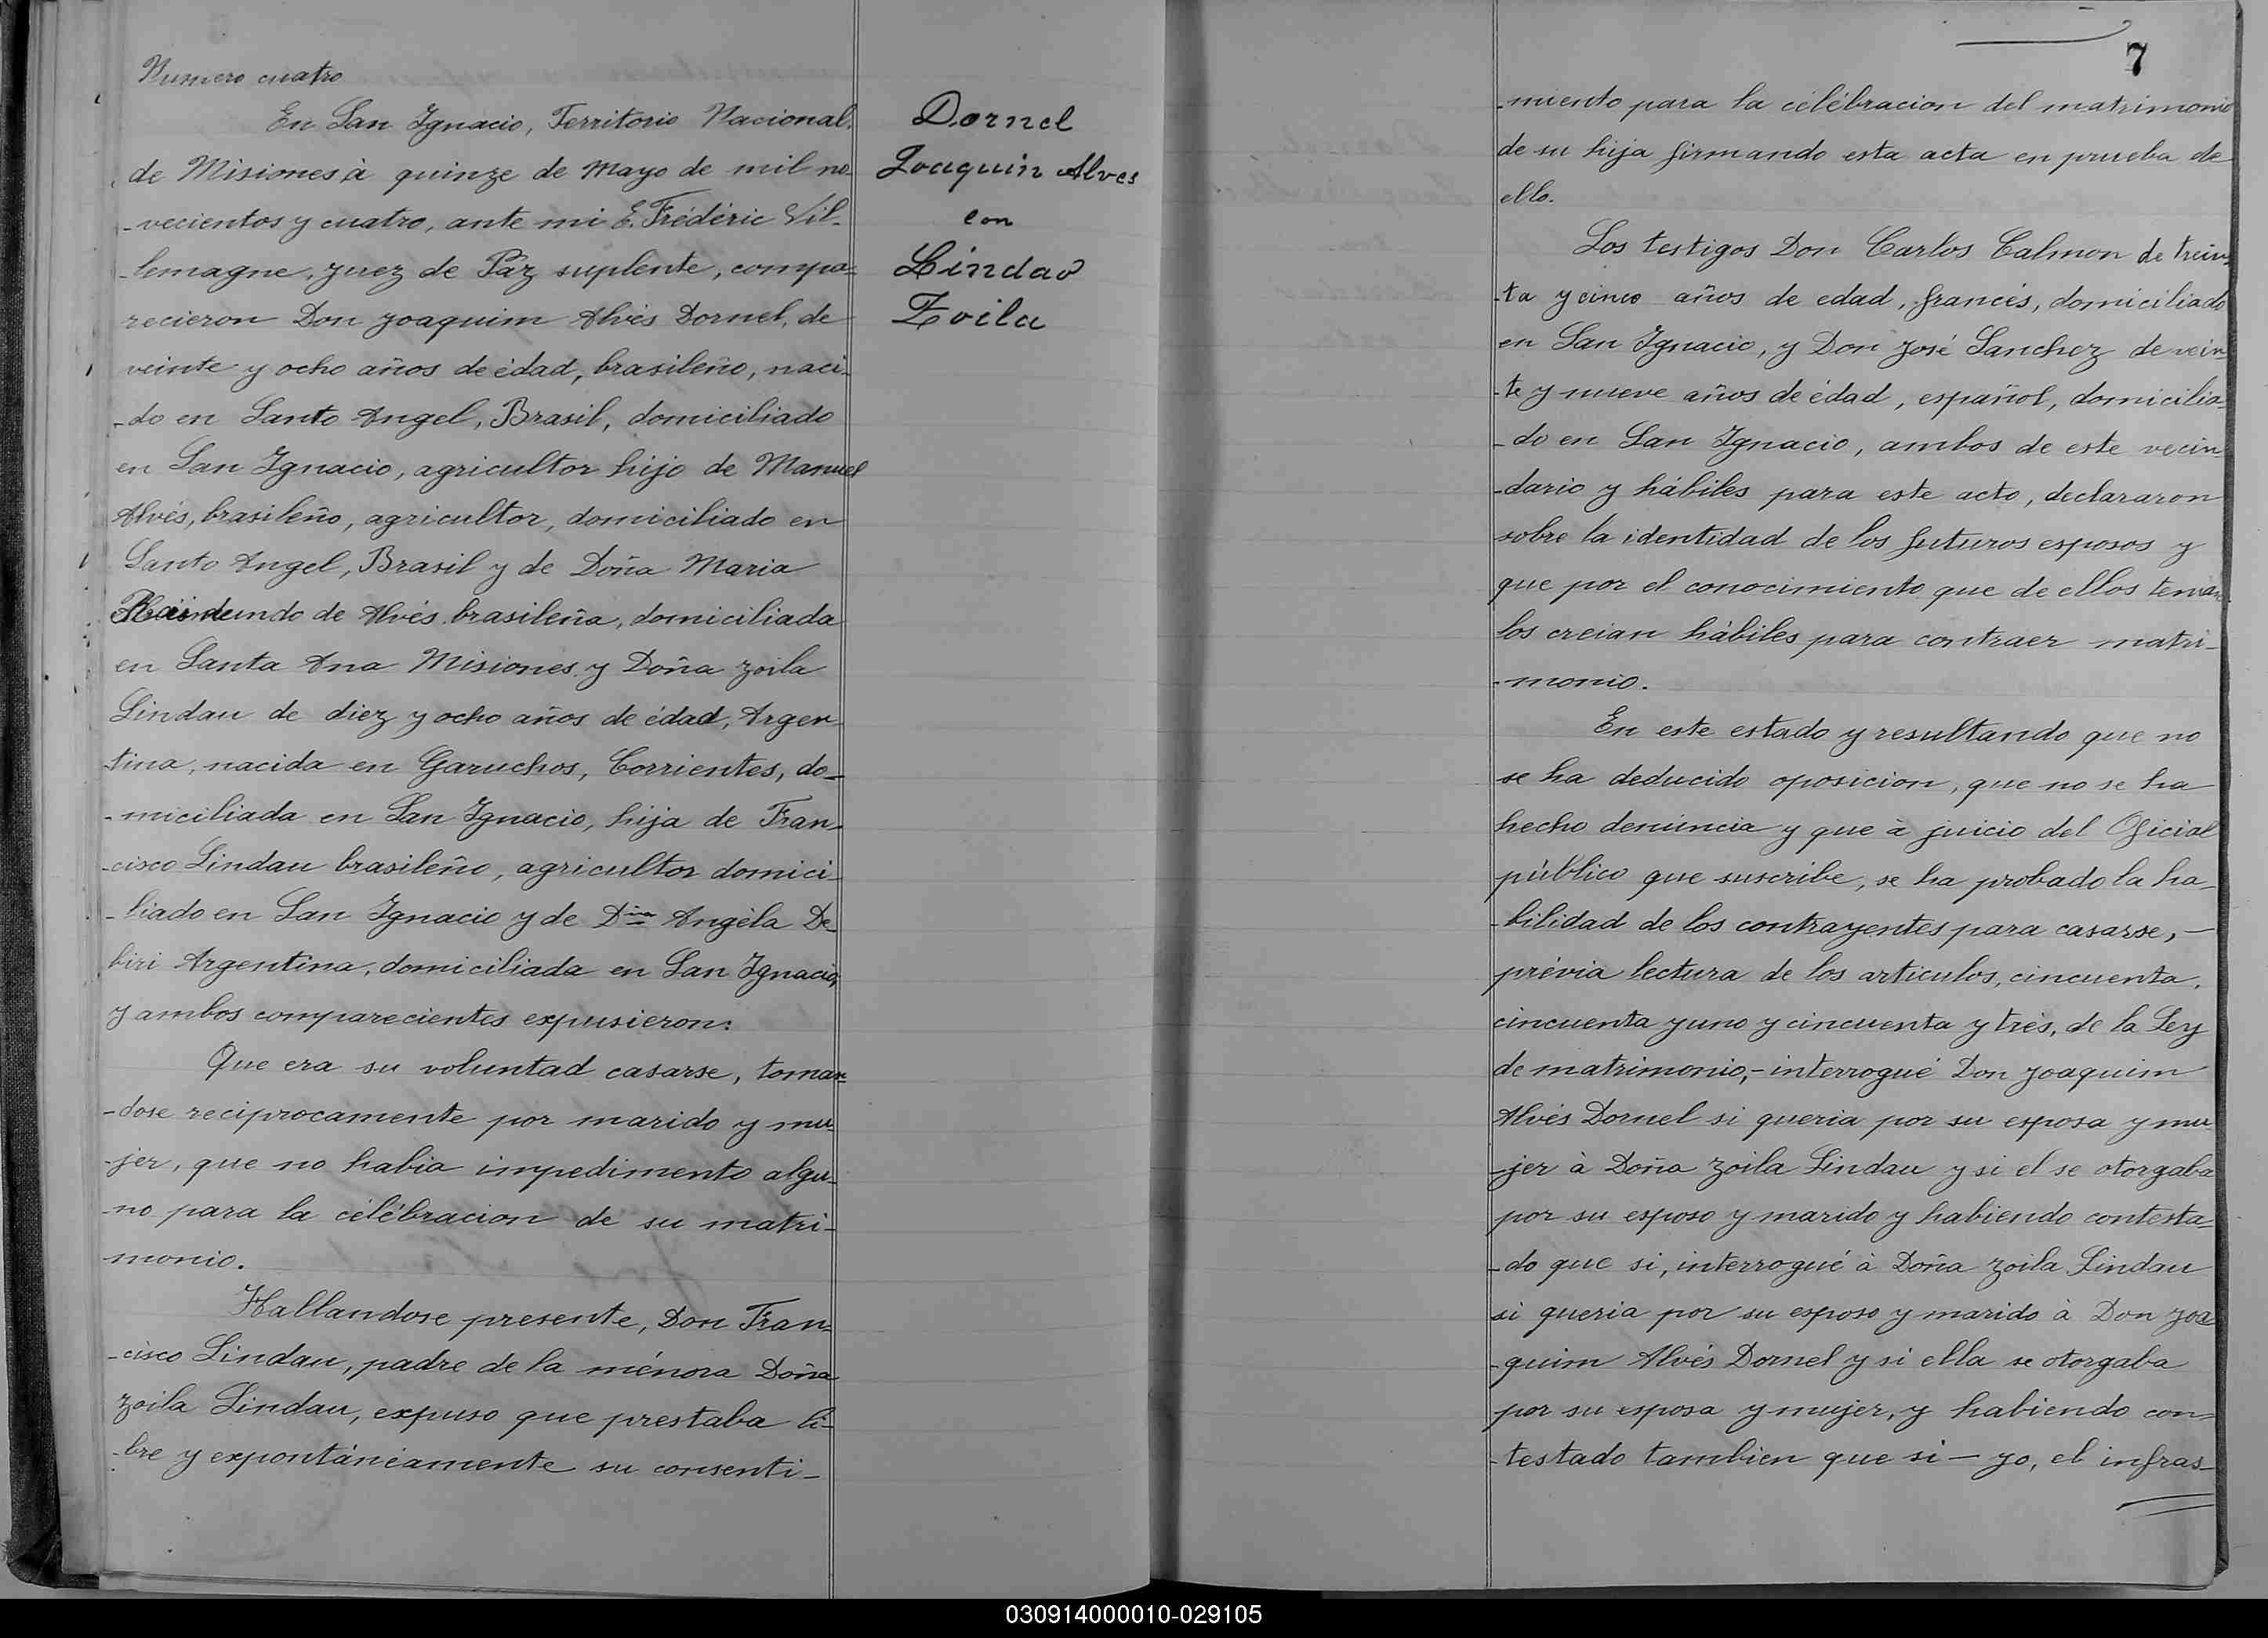 Numero cuatro
En San Ygnacio, Territorio Nacional
de Misiones à quinze de Mayo de mil no
-vecientos y cuatro, ante mi E. Frédéric Vil-
-lemagne, juez de Páz suplente, compa-
recieron Don Joaquim Alvés Dornel, de
veinte y ocho años de édad, brasileño, naci-
-do en Santo Angel, Brasil, domiciliado
en San Ygnacio, agricultor hijo de Manuel
Alvés, brasileño, agricultor, domiciliado en
Santo Angel, Brasil y de Doña Maria
de Alvés brasileña, domiciliada
en Santa Ana Misiones y Doña Zoila
Lindau de diez y ocho años de édad, Argen
tina, nacida en Garuchos, Corrientes, do-
-miciliada en San Ygnacio, hija de Fran-
-cisco Lindau brasileño, agricultor domici-
-liado en San Ygnacio y de Dña Angéla De
biri Argentina, domiciliada en San Ygnacio,
y ambos comparecientes expusieron:
Que era su voluntad casarse, toman-
-dose reciprocamente por marido y mu-
-jer, que no habia impedimento algu-
-no para la célébracion de su matri-
monio.
Hallandose presente, Don Fran-
-cisco Lindau, padre de la ménora Doña
Zoila Lindau, expuso que prestaba li-
-bre y expontánéamente su consenti-
Dornel
Joaquin Alves
con
Lindao
Zoila
7
-miento para la célébracion del matrimonio
de su hija firmando esta acta en prueba de
ello.
Los testigos Don Carlos Calmon de trein-
-ta y cinco años de edad, francés, domiciliado
en San Ygnacio, y Don José Sanchez de vein
-te y nueve años de édad, español, domicilia-
-do en San Ygnacio, ambos de este vecin-
-dario y hábiles para este acto, declararon
sobre la identidad de los futuros esposos y
que por el conocimiento que de ellos tenian
los creian hábiles para contraer matri-
-monio.
En este estado y resultando que no
se ha deducido oposicion, que no se ha
hecho denúncia y que à juicio del Oficial
público que suscribe, se ha probado la ha-
-bilidad de los contrayentes para casarse, -
prévia lectura de los articulos, cincuenta,
cincuenta y uno y cincuenta y trés, de la Ley
de matrimonio,- interrogué Don Joaquim
Alvés Dornel si queria por su esposa y mu
-jer à Doña Zoila Lindau y si el se otorgaba
por su esposo y marido y habiendo contesta-
-do que si, interrogué à Doña Zoila Lindau
si queria por su esposo y marido à Don Joa
-quim Alvés Dornel y si ella se otorgaba
por su esposa y mujer, y habiendo con-
-testado tambien que si - yo, el infras-
030914000010-029105